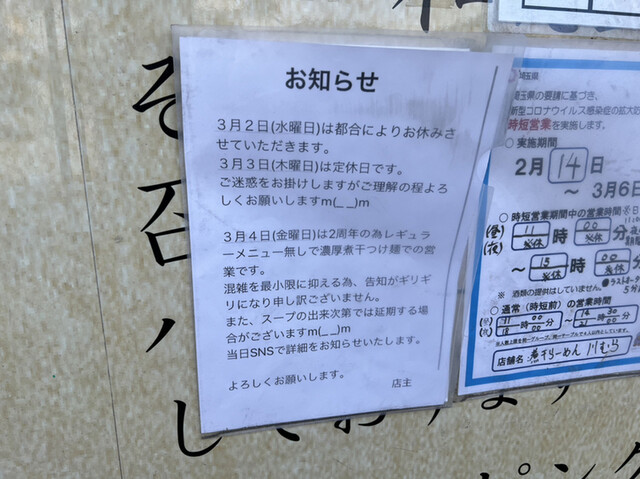 お知らせ
３月２日(水曜日)は都合によりお休みさ
せていただきます。
３月３日(木曜日)は定休日です。
ご迷惑をお掛けしますがご理解の程よろ
しくお願いしますm(_ _)m
３月４日(金曜日)は2周年の為レギュラ
ーメニュー無しで濃厚煮干つけ麺での営
業です。
混雑を最小限に抑える為、告知がギリギ
リになり申し訳ございません。
また、スープの出来次第では延期する場
合がございますm(_ _)m
当日SNSで詳細をお知らせいたします。
よろしくお願いします。 店主
埼玉県
埼玉県の要請に基づき、
新型コロナウイルス感染症の拡大
時短営業を実施します。
○ 実施期間
2月 14 日
～ 3月6日
○ 時短営業期間中の営業時間
(昼) 11 時 00 分
(夜) 休 休
～ 15 時 00
休
※ 酒類の提供はしていません。
○ 通常（時短前）の営業時間
11 時 00 分 ～ 14 時 30 分
18 00 21 00
店舗名 煮干らーめん 川むら
そ
召
ハ
しております